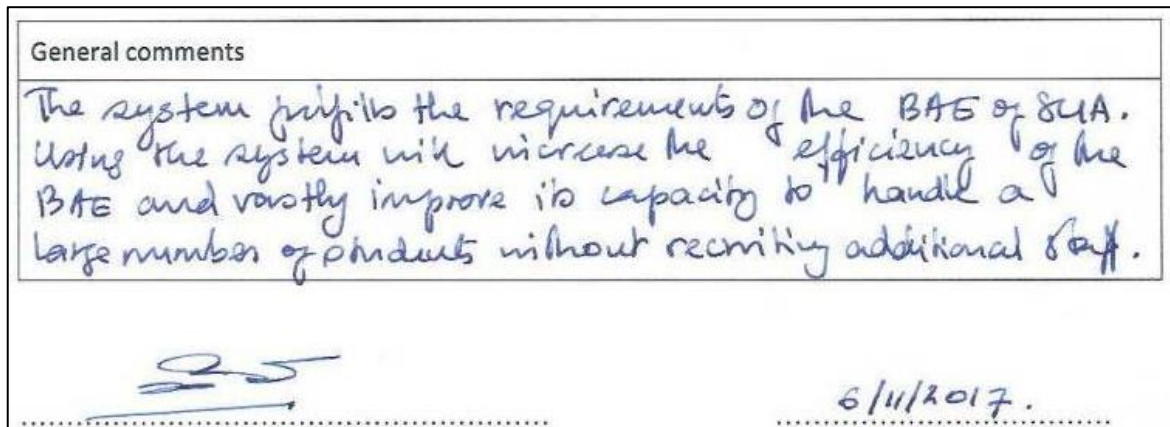 General comments
The system fulfills the requirements of the BAE of SLIA.
Using the system will increase the efficiency of the
BAE and vastly improve its capacity to handle a
large number of students without recruiting additional staff.
6/11/2017.